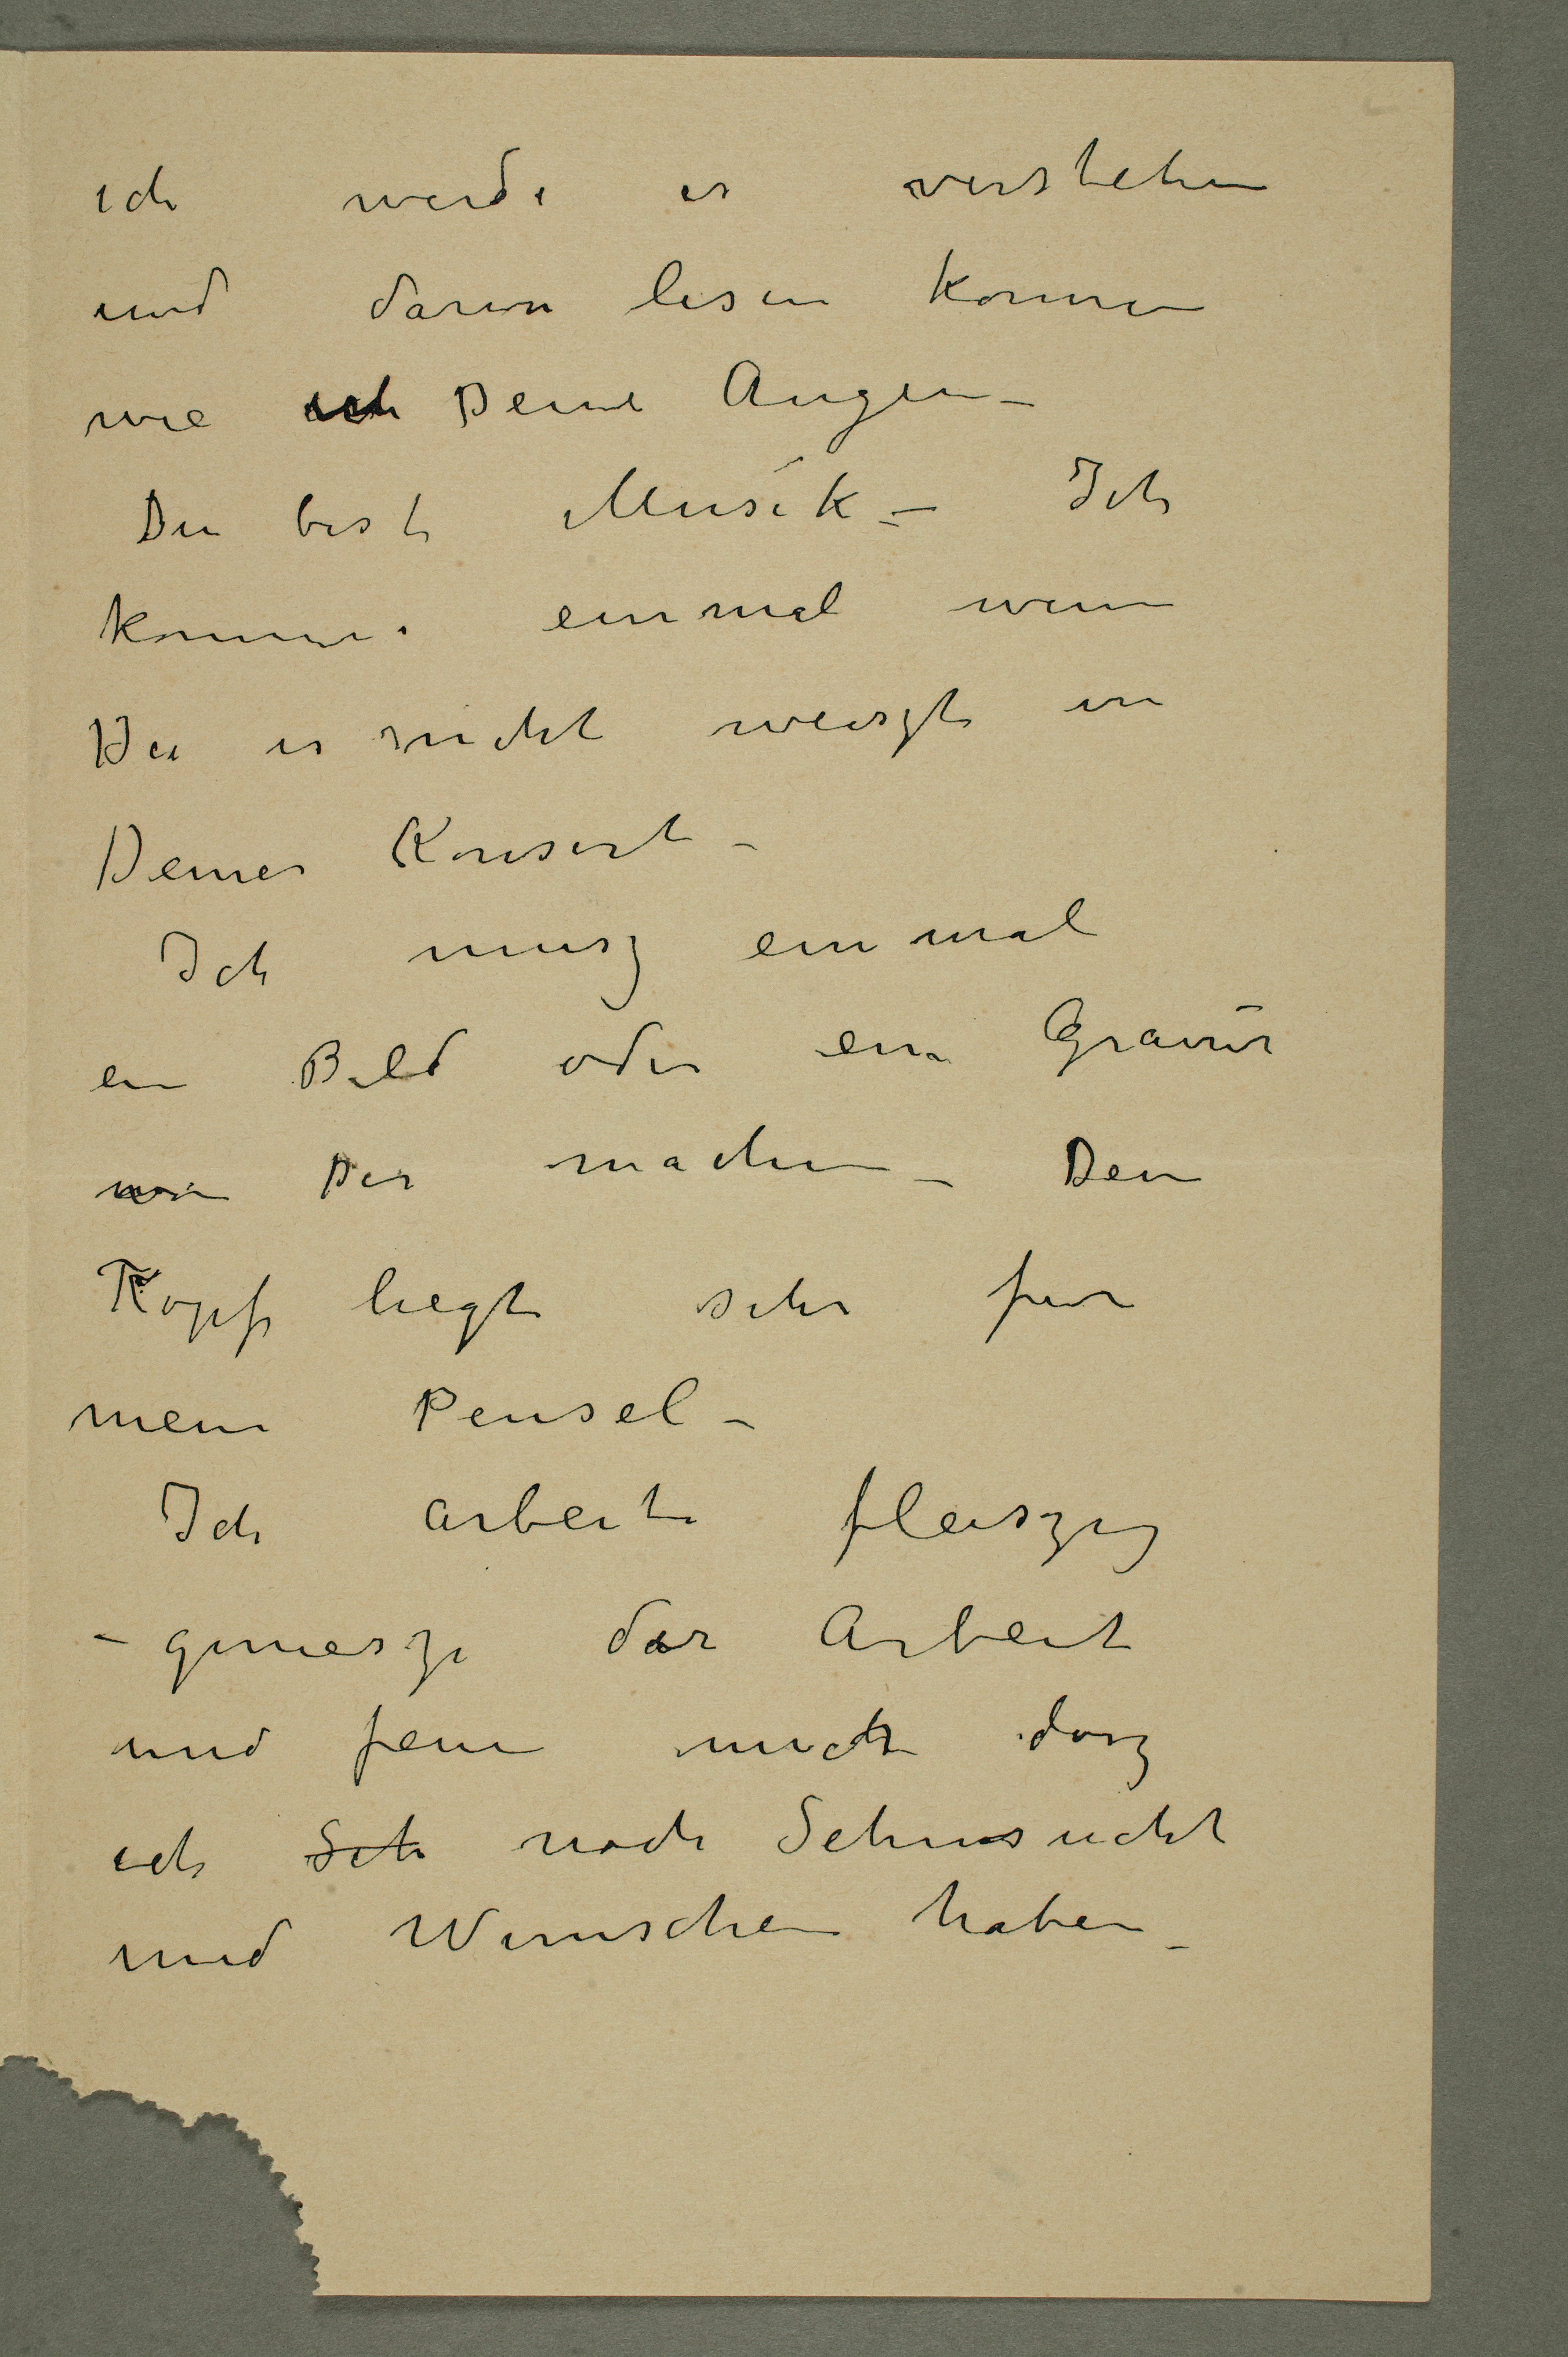 ich werde es verstehen
und darin lesen konnen
wie ich Deine Augen –
Du bist Musik – Ich
komme einmal wenn
Du es nicht weiszt in
Deiner Konsert –
Ich musz einmal
ein Bild oder ein Gravür
von Dir machen – Dein
Kopf liegt sehr fur
mein Pensel –
Ich arbeite fleiszig
– geniesze der Arbeit
und freue mich dasz
ich Seh noch Sehnsucht
und Wunschen haben –